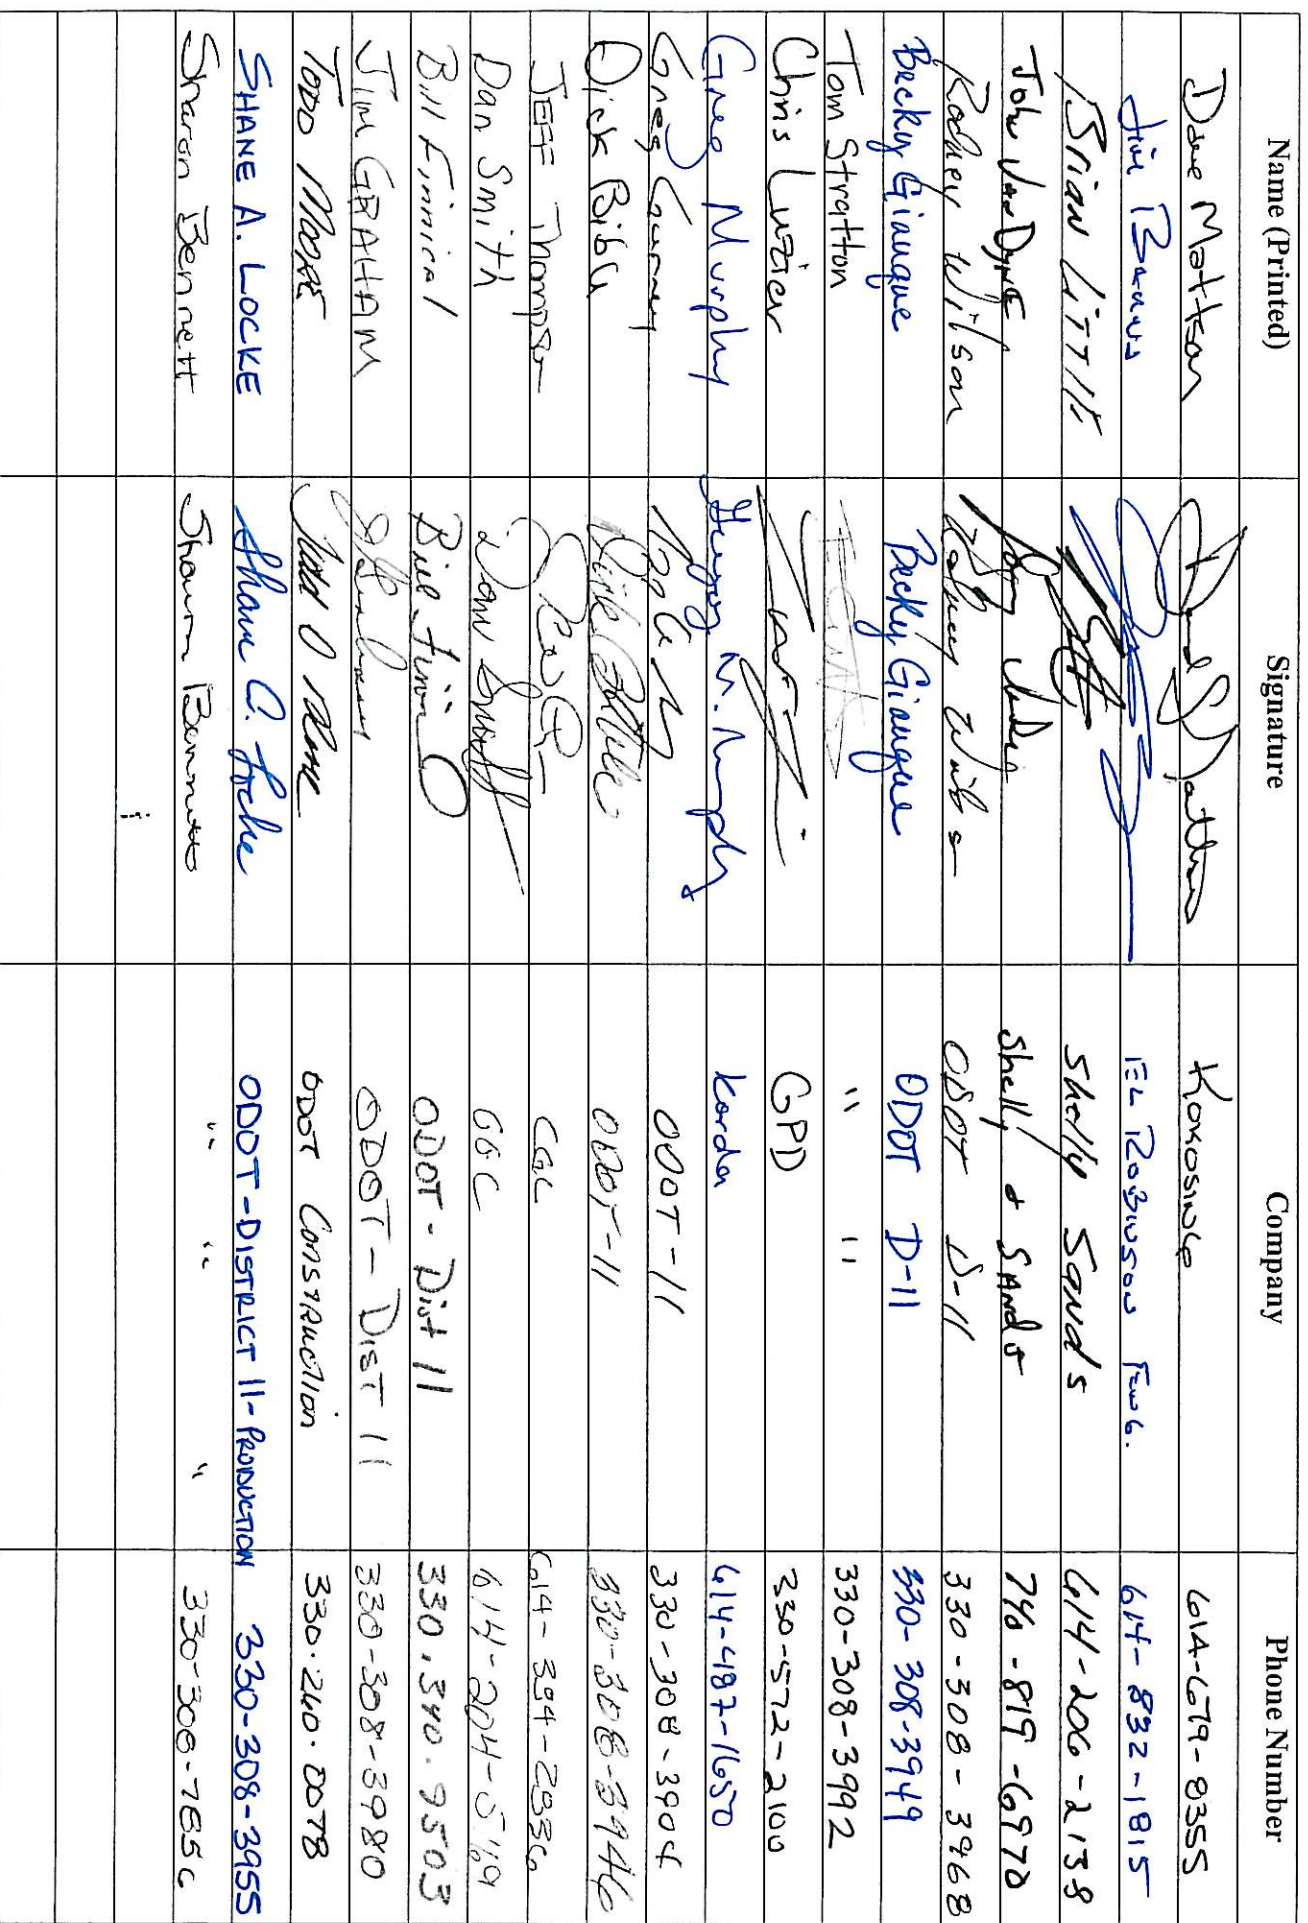 Name (Printed) Signature Company Phone Number
Dave Mattson Kokosing 614-679-8355
Jim EL Robinson Engg. 614-832-1815
Brian Little Shelly Sands 614-206-2138
John VanDyne Shelly & Sands 740-819-6970
Rodney Wilson Rodney ODOT D-11 330-308-3968
Becky Giauque Becky Giauque ODOT D-11 330-308-3949
Tom Stratton " " 330-308-3992
Chris Luzier GPD 330-572-2100
Greg Murphy Murphy Korda 614-487-1650
Greg Gurney ODOT-11 330-308-3904
Dick Biblu ODOT-11 330-308-3946
JEFF Thompson CGC 614-394-2836
Dan Smith Dan Smith CGC 614-204-5169
Bill Finnical Bill ODOT-Dist 11 330.340.9503
Jim GRAHAM ODOT-DIST 11 330-308-3980
TODD MOORE ODOT CONSTRUCTION 330.260.0078
SHANE A. LOCKE Shane A. Locke ODOT-DISTRICT 11-PRODUCTION 330-308-3955
Sharon Bennett Sharon Bennett " " " 330-308-7856